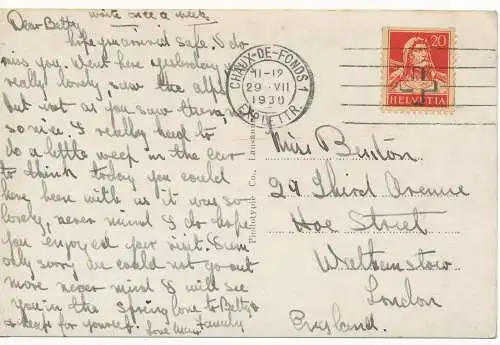 write once a week
Dear Betty,
Hope you arrived safe, I do
miss you. Went here yesterday
really lovely, saw the alps
but not as you saw them
so nice. I really had to
do a little weep in the car
to think today you could
have been with us it was so
lovely, never mind I do hope
you enjoyed your visit. I am
only sorry we could not go out
more never mind I will see
you in the spring love to Betty &
& heaps for yourself. love
Family
CHAUX-DE-FONDS 1
11-12
29 ·VII
1930
EXP. LETTR.
20
HELVETIA
Miss Benton
29 Third Avenue
Hoe Street
Walthamstow
London
England.